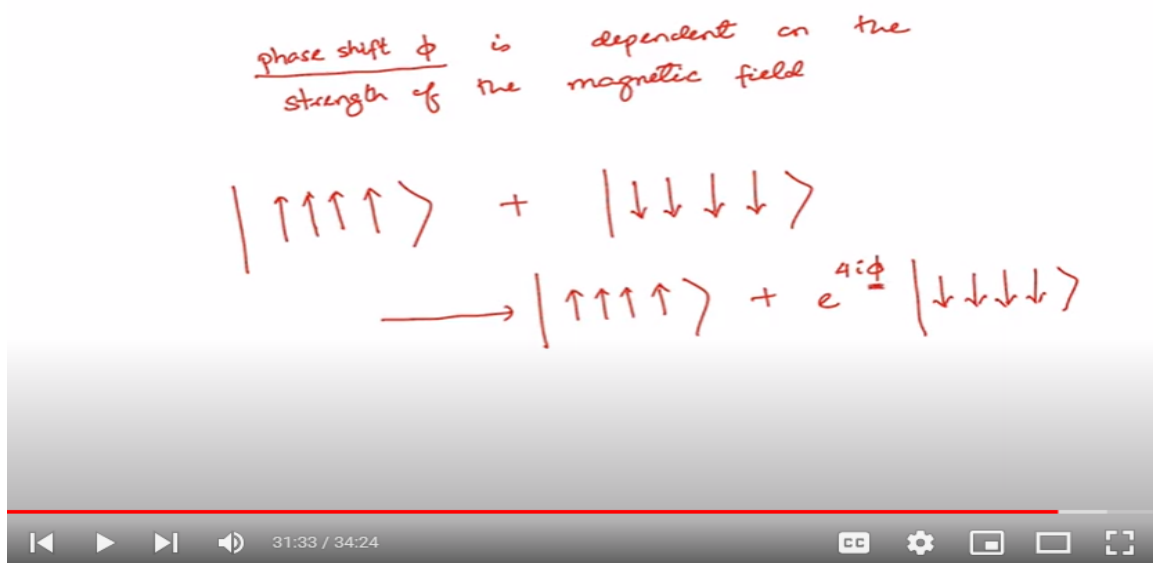 phase shift ϕ is dependent on the
strength of the magnetic field
| ↑↑↑↑ ⟩ + | ↓↓↓↓ ⟩
⟶ | ↑↑↑↑ ⟩ + e^{4iϕ} | ↓↓↓↓ ⟩
31:33 / 34:24
CC